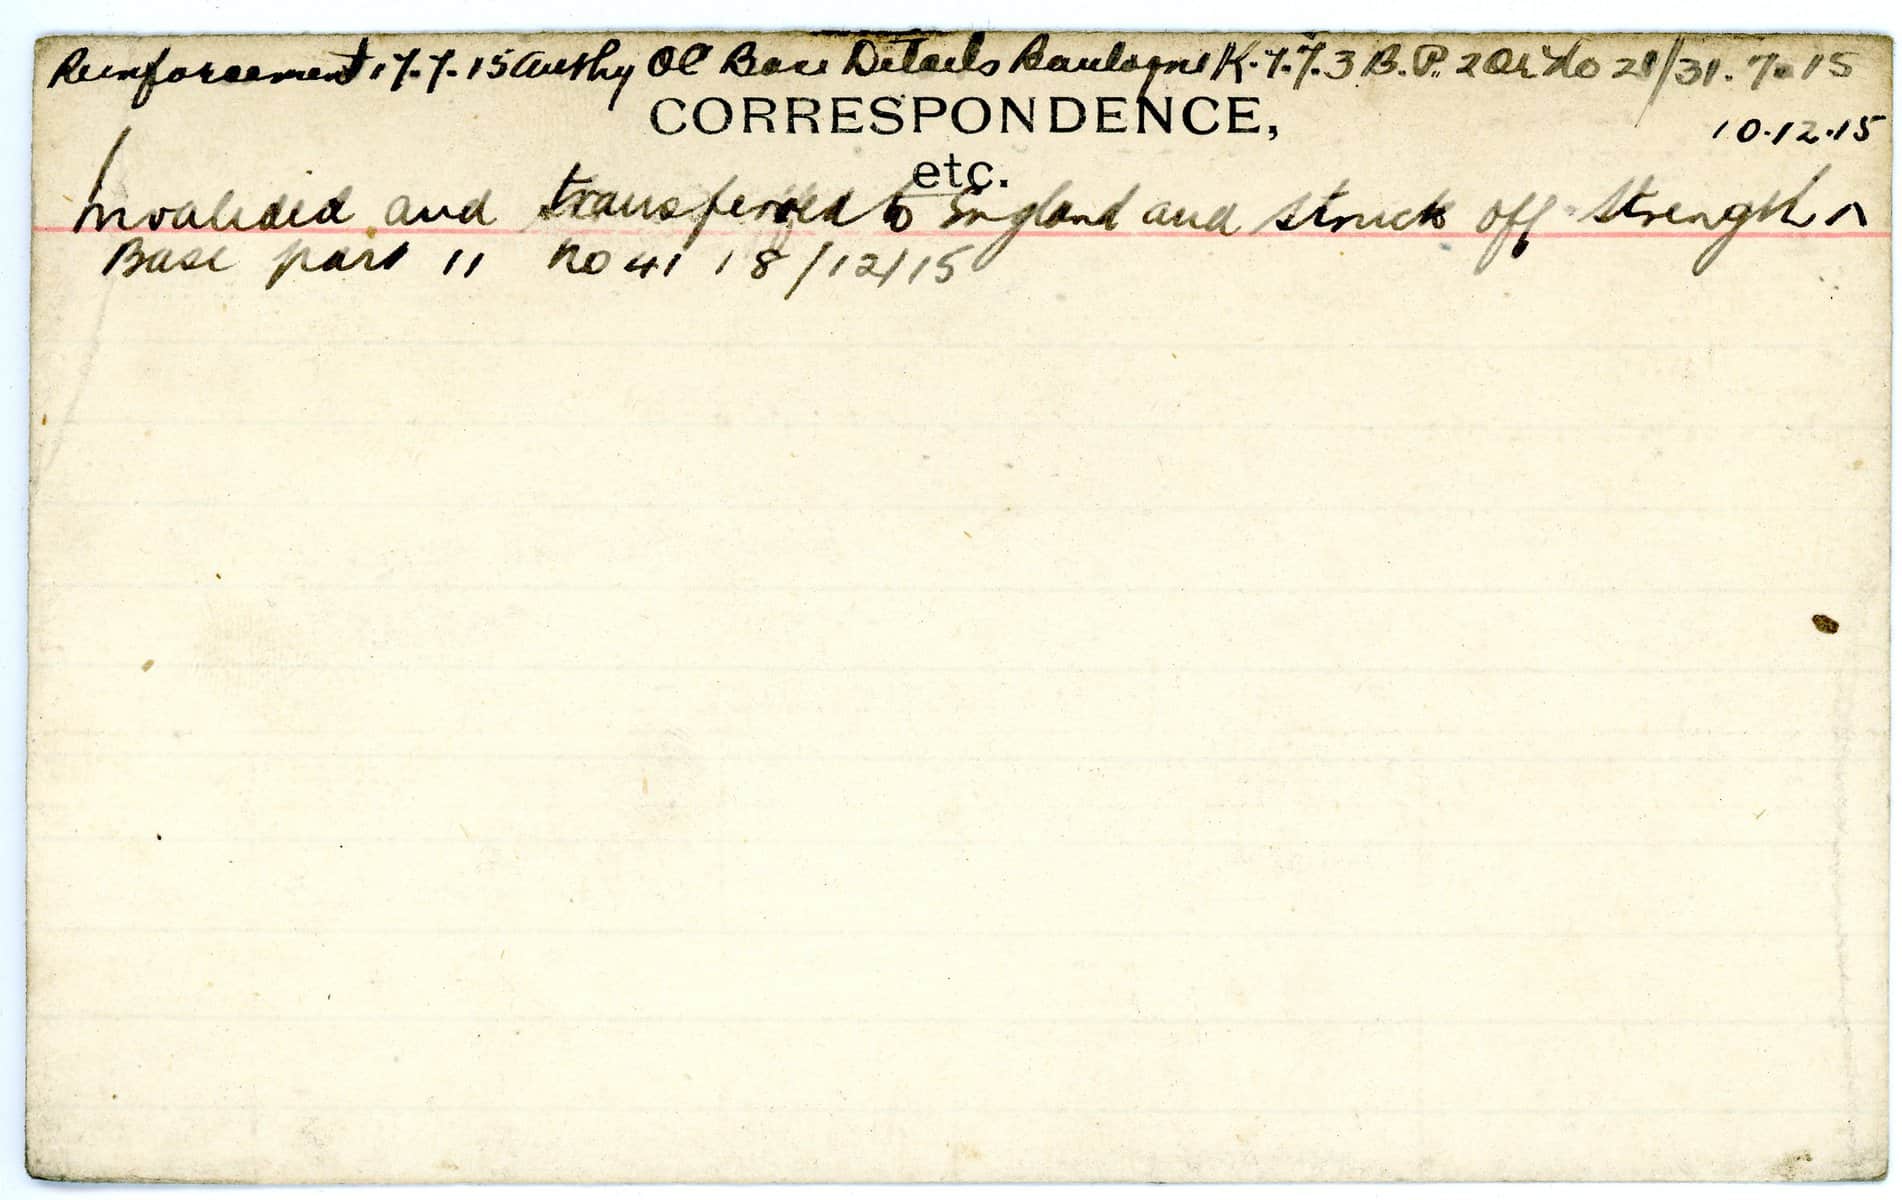 Reinforcement 17.7.15 Authy OC Base Details Boulogne K.7.7.3 B.P. 2 Or No 21/31.7.15
CORRESPONDENCE,
10.12.15
etc.
Invalided and transferred to England and struck off strength ^
Base part 11 No 41 18/12/15